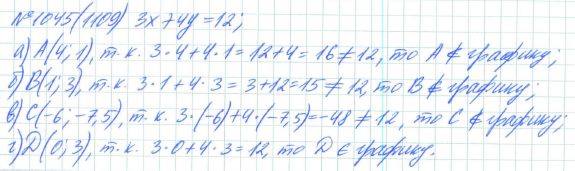 №1045(1109) 3x+4y=12;
а) A(4; 1), т.к. 3·4+4·1=12+4=16≠12, то A ∉ графику;
б) B(1; 3), т.к. 3·1+4·3=3+12=15≠12, то B ∉ графику;
в) C(-6; -7,5), т.к. 3·(-6)+4·(-7,5)=-48≠12, то C ∉ графику;
г) D(0; 3), т.к. 3·0+4·3=12, то D ∈ графику.